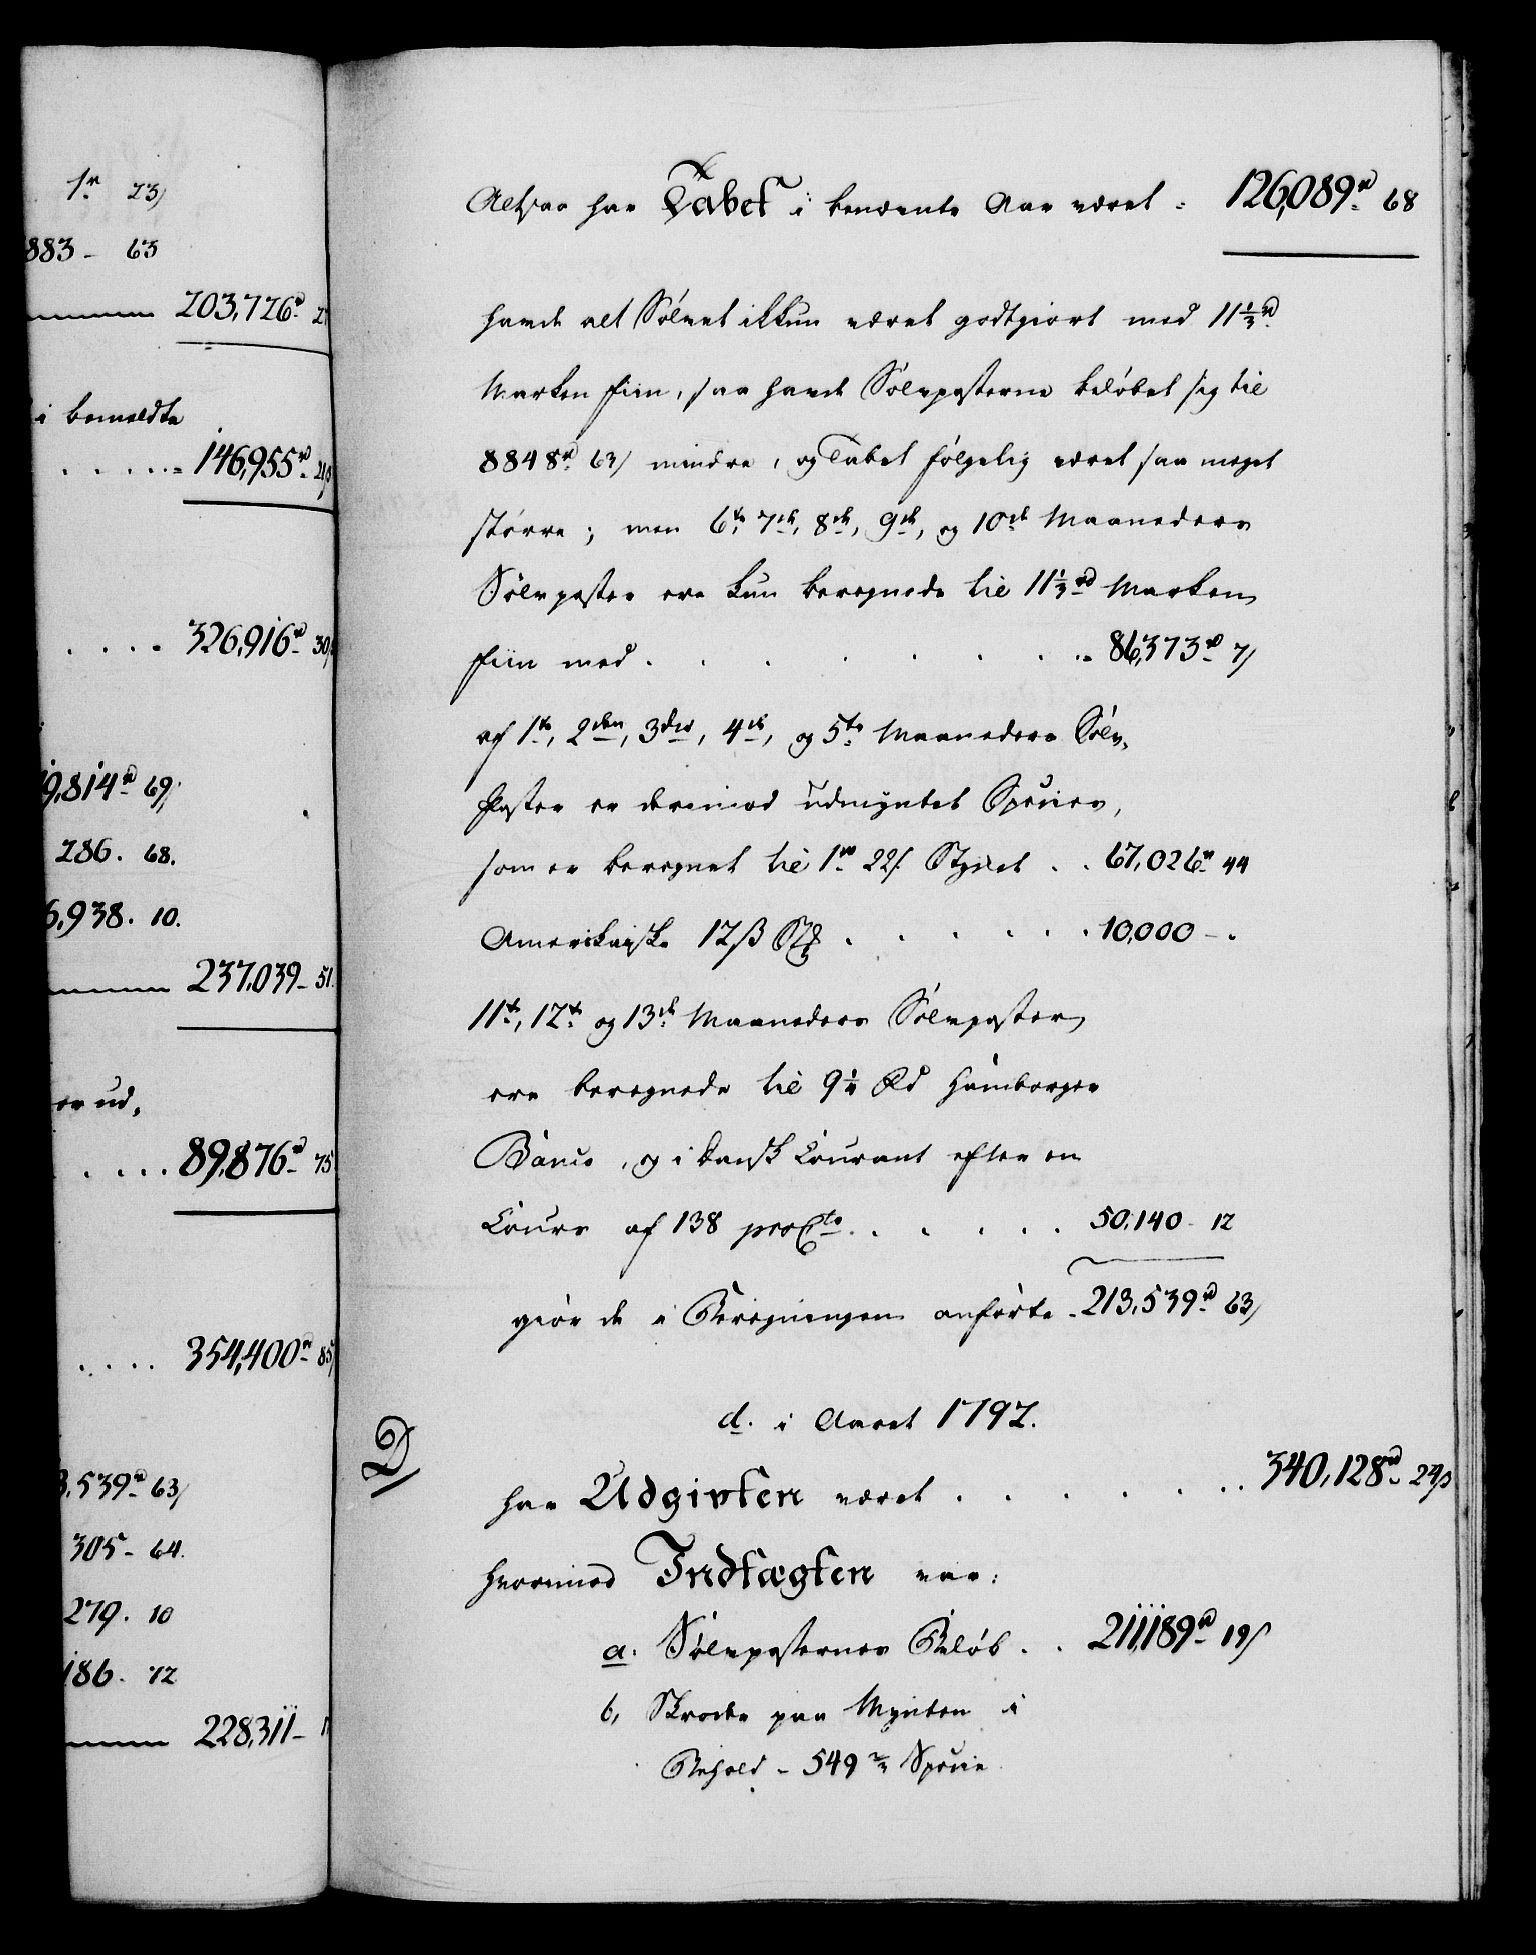 1rd 23s
883 - 63
203,726rd
i bemeldte
. . . . . 146,955rd 21s
. . . . 326,916rd 30s
19,814rd 69s
286. 68.
6,938. 10.
237,039 - 51.
er ud-
. . . . 89,876rd 75
. . . . 354,400rd 85s
3,539rd 63s
305 - 64.
279. 10
186. 72
228,311 -
Altsaa har Tabet i benævnte Aar været - 126,089rd 68
havde alt Sølvet ikkun været godtgiort med 11 1/3 rd
Marken fiin, saa havde Sølvposterne beløbet sig til
8848rd 63s mindre, og Tabet følgelig været saa meget
større; men 6te, 7de, 8de, 9de, og 10de Maaneders
Sølvposter ere kun beregnede til 11 1/3 rd Marken
fiin med . . . . . . . . 86,373rd 7s
af 1te, 2den, 3die, 4de, og 5te Maaneders Sølv-
Poster er derimod udmyntet Species,
som er beregnet til 1rd 22s. Stykket . . 67,026rd 44
Amerikanske 12 s St . . . . . . . 10,000 - .
11te, 12te og 13de Maaneders Sølvposter
ere beregnede til 9 1/4 Rd Hamborger
Banco, og i dansk Courant efter en
Cours af 138 proCto . . . . . . 50,140 - 12
giør de i Beregningen anførte - 213,539rd 63s
d. i Aaret 1792.
D
har Udgivten været . . . . . . . . 340,128rd 24s
hvorimod Indtægten var:
a. Sølvposternes Beløb . . 211,189rd 19s
b, Skrodte paa Mynten i
Behold - 549 Specie